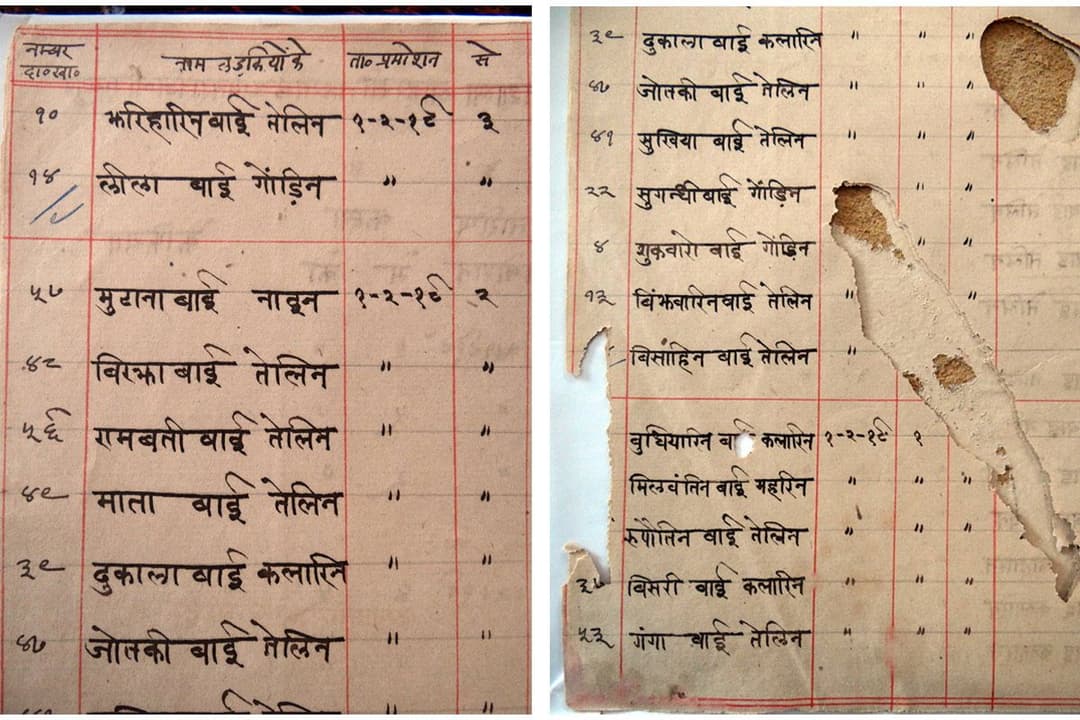 नम्बर दा०खा० नाम लड़कियों के ता० प्रमोशन से
१० झरिहारिन बाई तेलिन १-२-१९ ३
१४ लीला बाई गोंड़िन " "
५७ मुटाना बाई नाइन १-२-१९ २
४८ बिरझा बाई तेलिन " "
५६ रामबती बाई तेलिन " "
४९ माता बाई तेलिन " "
३९ दुकाला बाई कलारिन " "
४० जोतकी बाई तेलिन " "
३९ दुकाला बाई कलारिन " " "
४० जोतकी बाई तेलिन " " "
४१ सुखिया बाई तेलिन " " "
२२ सुगन्धी बाई गोंड़िन " "
४ शुकवारो बाई गोंड़िन " "
१३ बिंझवारिन बाई तेलिन " "
बिसाहिन बाई तेलिन "
बुधियारिन बाई कलारिन १-२-१९ १ "
मिलवंतिन बाई महरिन " " "
रुपौतिन बाई तेलिन " " "
३७ बिसरी बाई कलारिन " " "
५३ गंगा बाई तेलिन " " "